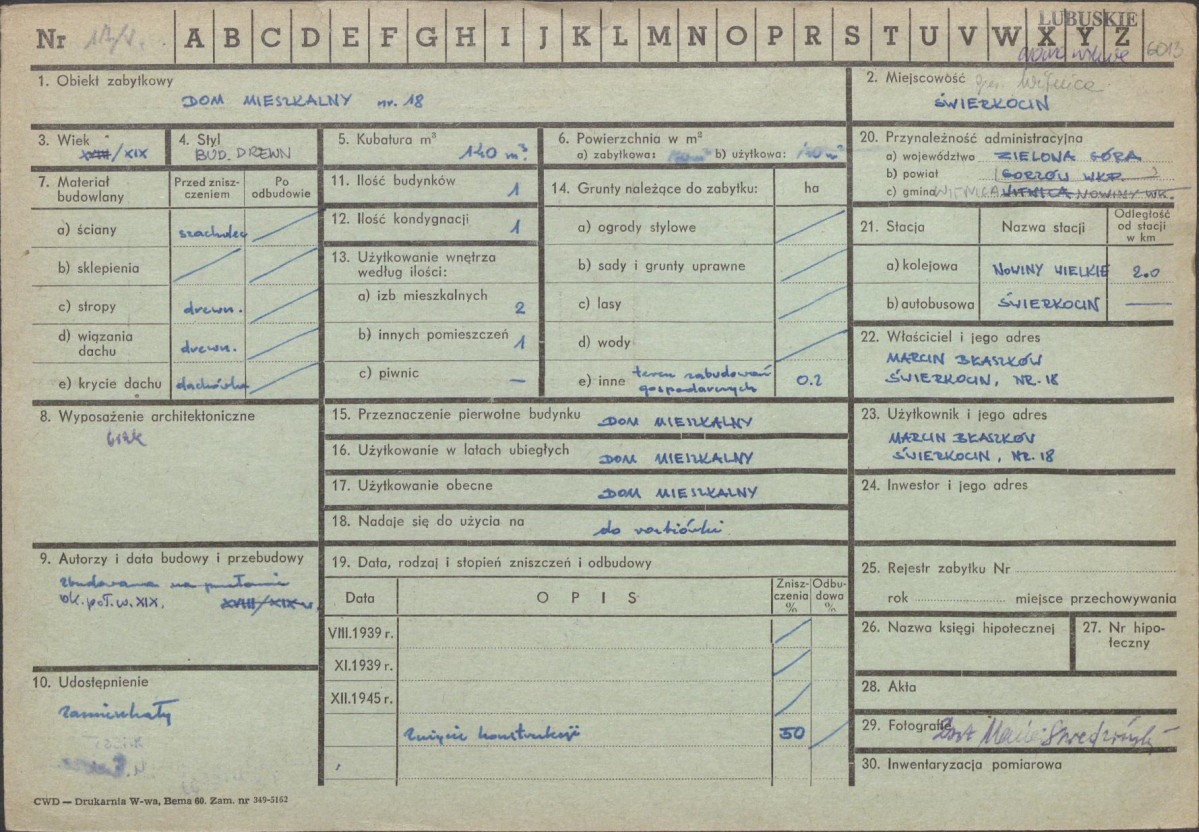 LUBUSKIE
Nr 17/V. A B C D E F G H I J K L M N O P R S T U V W X Y Z 6013
1. Obiekt zabytkowy
DOM MIESZKALNY nr. 18
2. Miejscowość gm. Witnica
ŚWIERKOCIN
3. Wiek
XVIII/XIX
4. Styl
BUD. DREWN
5. Kubatura m³
140 m³
6. Powierzchnia w m²
a) zabytkowa: b) użytkowa:
20. Przynależność administracyjna
a) województwo ZIELONA GÓRA
b) powiat GORZÓW WKP.
c) gmina WITNICA WITNICA NOWINY WK.
7. Materiał budowlany
Przed znisz-
czeniem
Po
odbudowie
a) ściany szachulec
b) sklepienia
c) stropy drewn.
d) wiązania
dachu drewn.
e) krycie dachu dachówka
11. Ilość budynków 1
12. Ilość kondygnacji 1
13. Użytkowanie wnętrza
według ilości:
a) izb mieszkalnych 2
b) innych pomieszczeń 1
c) piwnic —
14. Grunty należące do zabytku: ha
a) ogrody stylowe
b) sady i grunty uprawne
c) lasy
d) wody
e) inne teren zabudowań
gospodarczych 0.2
21. Stacja Nazwa stacji Odległość
od stacji
w km
a) kolejowa NOWINY WIELKIE 2.0
b) autobusowa ŚWIERKOCIN —
22. Właściciel i jego adres
MARCIN BŁASZKÓW
ŚWIERKOCIN, NR. 18
8. Wyposażenie architektoniczne
brak
15. Przeznaczenie pierwotne budynku DOM MIESZKALNY
16. Użytkowanie w latach ubiegłych DOM MIESZKALNY
17. Użytkowanie obecne DOM MIESZKALNY
18. Nadaje się do użycia na do rozbiórki
23. Użytkownik i jego adres
MARCIN BŁASZKÓW
ŚWIERKOCIN, NR. 18
24. Inwestor i jego adres
9. Autorzy i data budowy i przebudowy
zbudowana na przełomie
ok. poł. w. XIX. XVIII/XIX w.
19. Data, rodzaj i stopień zniszczeń i odbudowy
Data OPIS Znisz-
czenia
%
Odbu-
dowa
%
VIII.1939 r.
XI.1939 r.
XII.1945 r.
Zużycie konstrukcji 50
25. Rejestr zabytku Nr
rok miejsce przechowywania
26. Nazwa księgi hipotecznej
27. Nr hipo-
teczny
28. Akta
29. Fotografie
30. Inwentaryzacja pomiarowa
10. Udostępnienie
zamieszkały
CWD — Drukarnia W-wa, Bema 60. Zam. nr 349-5162